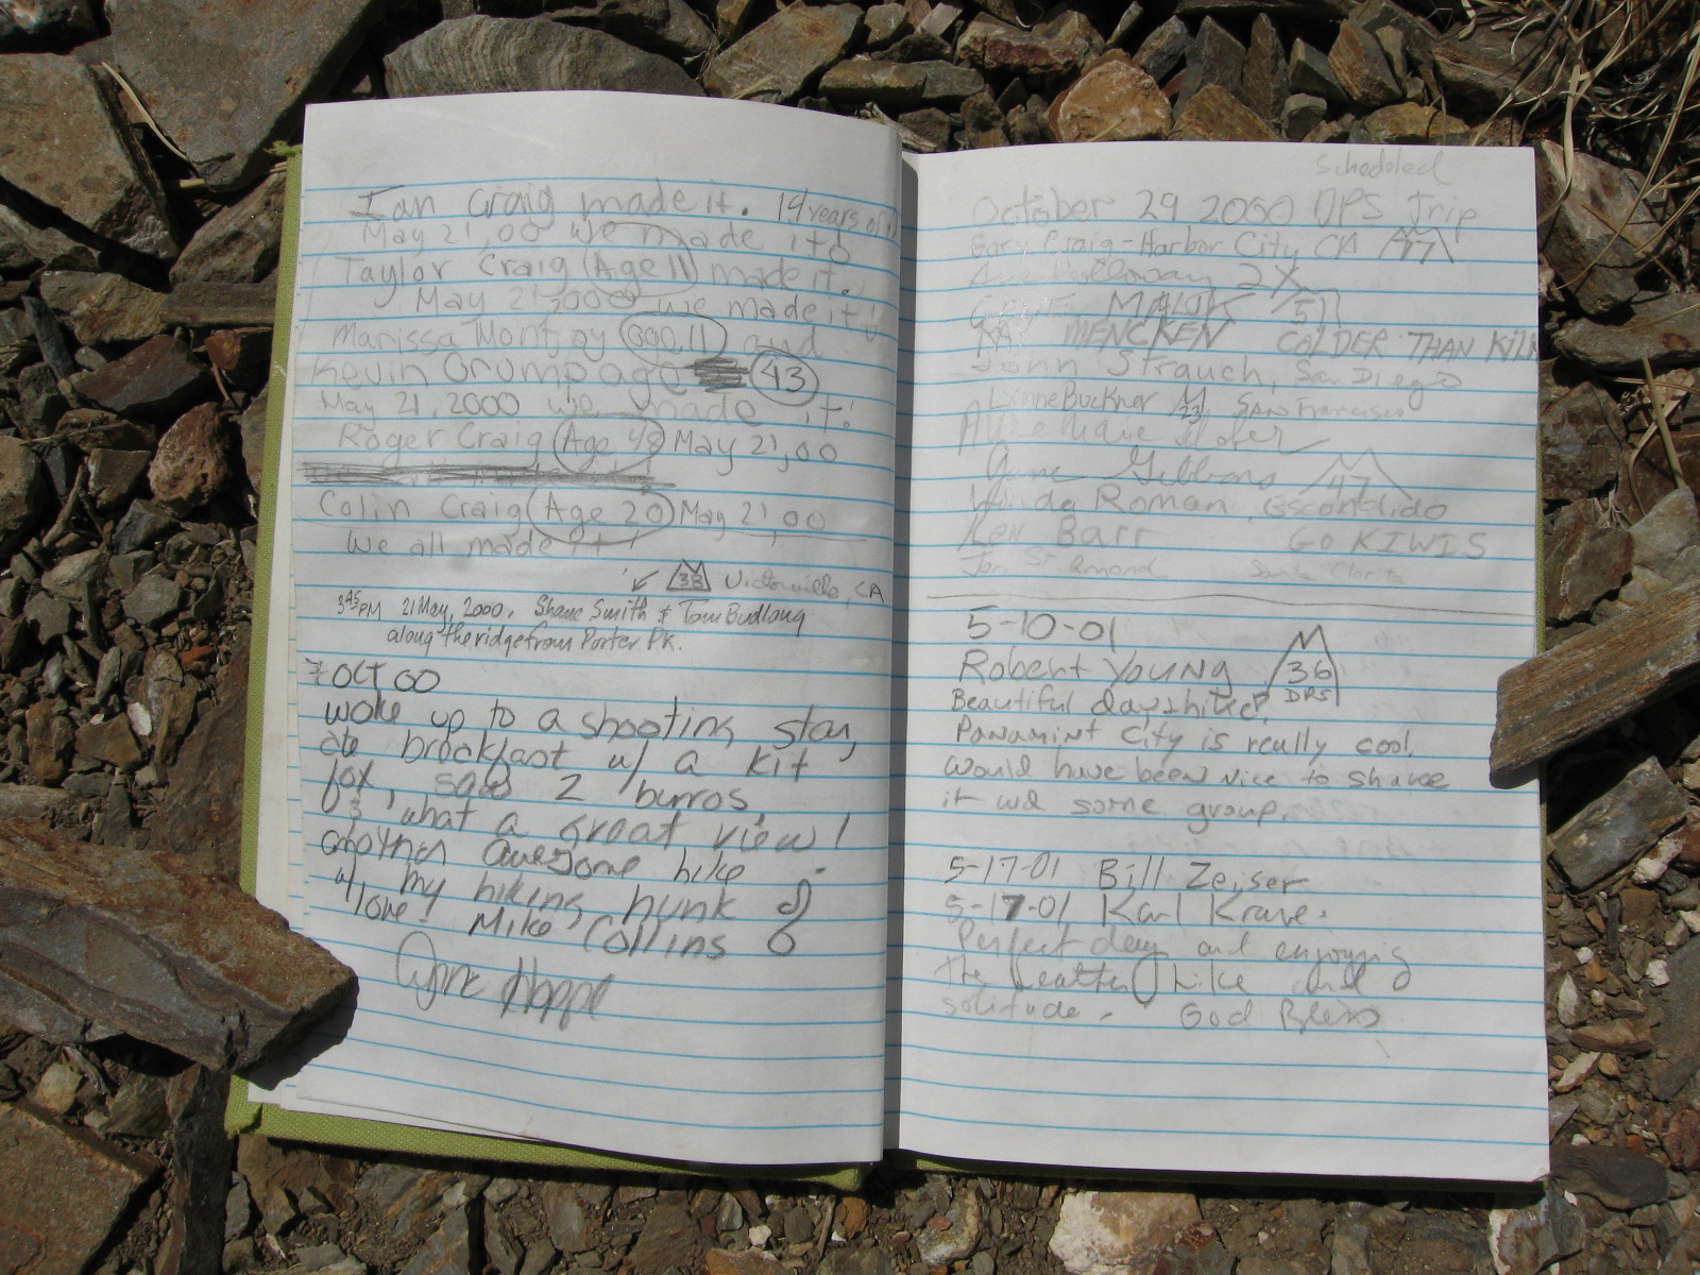 Ian Craig made it. 14 years old
May 21, 00 we made it!
Taylor Craig (Age 11) made it.
May 21, 2000 we made it!
Marissa Montjoy age 11 and
Kevin Crump age 43
May 21, 2000 we made it!
Roger Craig (Age 48) May 21, 00
Colin Craig (Age 20) May 21, 00
We all made it!
38 Victorville, CA
3:45 PM 21 May, 2000. Shane Smith & Tom Budlong
along the ridge from Porter Pk.
7 OCT 00
woke up to a shooting star,
ate breakfast w/ a kit
fox, saw 2 burros
& what a great view!
another awesome hike
w/ my hiking hunk &
love! Mike Collins
Scheduled
October 29 2000 DPS Trip
Gary Craig-Harbor City CA 47
Holloway 2X
MALIK 51
MENCKEN COLDER THAN
John Strauch, San Diego
Lynne Buckner 23 SAN Francisco
June Gibbons 47
Roman, Escondido
Ken Barr GO KIWIS
St. Amond Santa Clarita
5-10-01
Robert Young 36
DPS
Beautiful day & hike.
Panamint City is really cool,
would have been nice to share
it w/ some group.
5-17-01 Bill Zeiser
5-17-01 Karl Krave.
Perfect day and enjoying
the weather, hike and
solitude. God Bless